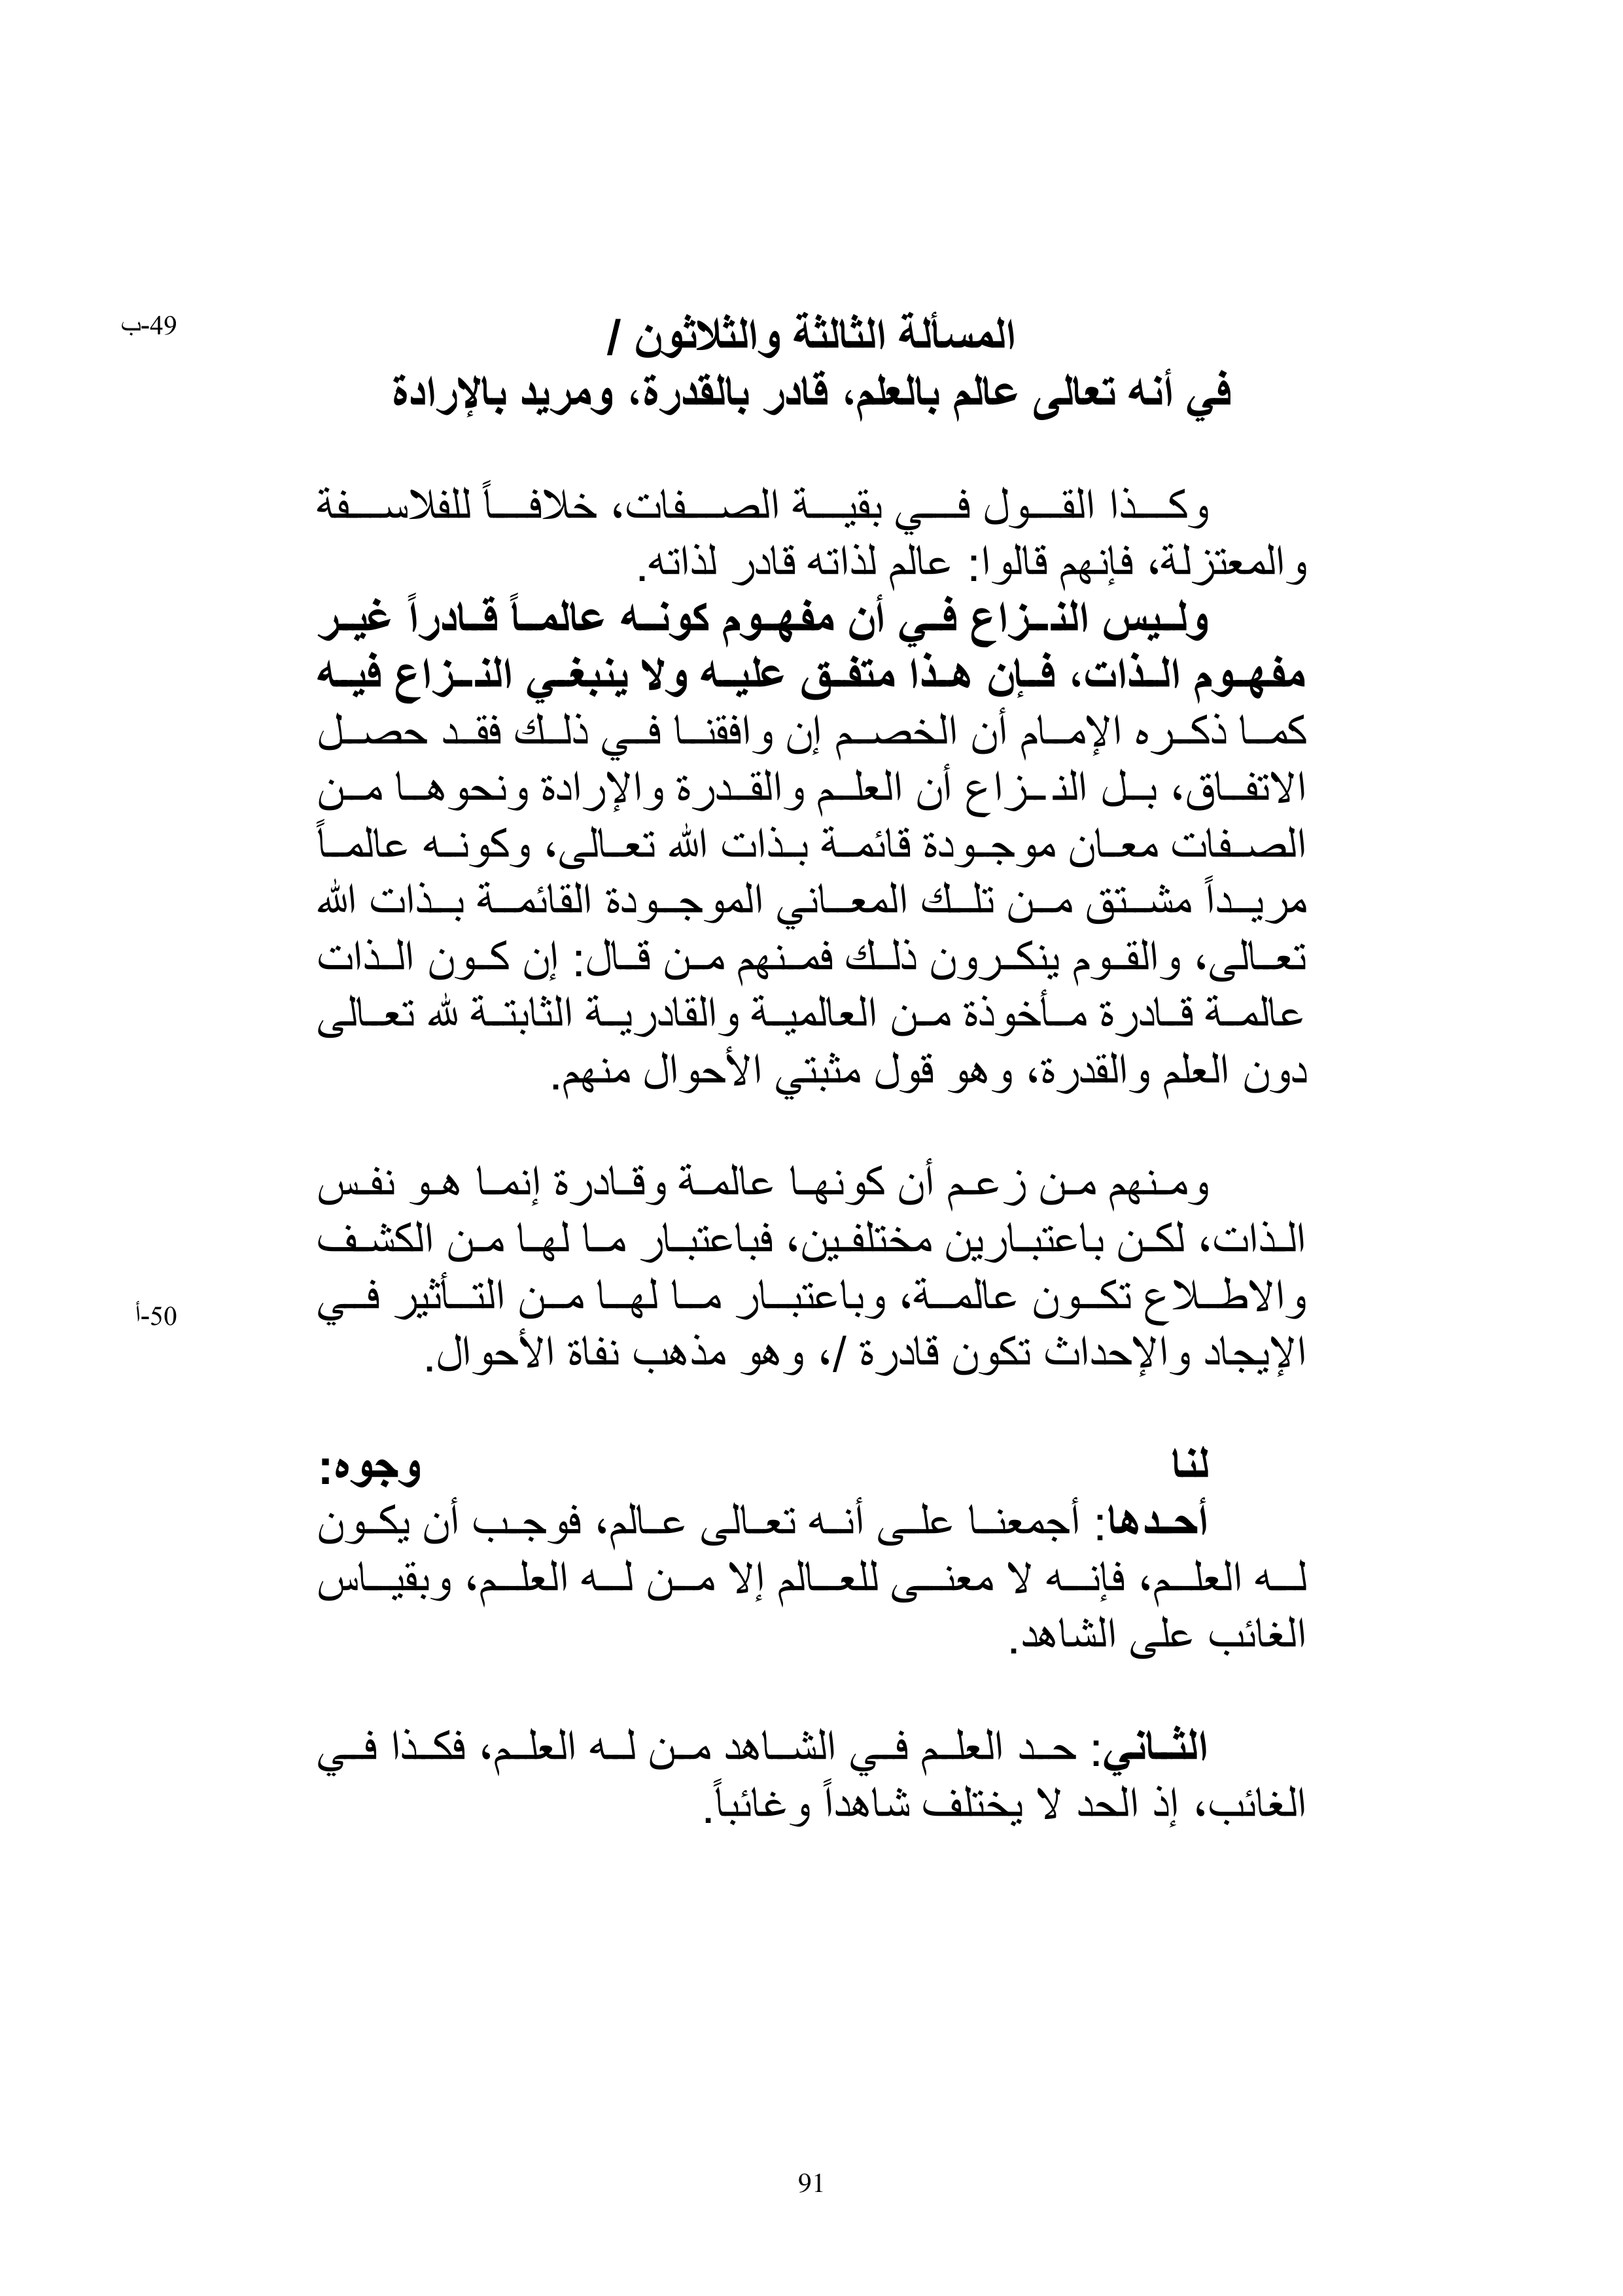 49-ب
المسألة الثالثة والثلاثون /
في أنه تعالى عالم بالعلم، قادر بالقدرة، ومريد بالإرادة
وكذا القول في بقية الصفات، خلافاً للفلاسفة
والمعتزلة، فإنهم قالوا: عالم لذاته قادر لذاته.
وليس النزاع في أن مفهوم كونه عالماً قادراً غير
مفهوم الذات، فإن هذا متفق عليه ولا ينبغي النزاع فيه
كما ذكره الإمام أن الخصم إن وافقنا في ذلك فقد حصل
الاتفاق، بل النزاع أن العلم والقدرة والإرادة ونحوها من
الصفات معان موجودة قائمة بذات الله تعالى، وكونه عالماً
مريداً مشتق من تلك المعاني الموجودة القائمة بذات الله
تعالى، والقوم ينكرون ذلك فمنهم من قال: إن كون الذات
عالمة قادرة مأخوذة من العالمية والقادرية الثابتة لله تعالى
دون العلم والقدرة، وهو قول مثبتي الأحوال منهم.
ومنهم من زعم أن كونها عالمة وقادرة إنما هو نفس
الذات، لكن باعتبارين مختلفين، فباعتبار ما لها من الكشف
والاطلاع تكون عالمة، وباعتبار ما لها من التأثير في
50-أ
الإيجاد والإحداث تكون قادرة /، وهو مذهب نفاة الأحوال.
لنا وجوه:
أحدها: أجمعنا على أنه تعالى عالم، فوجب أن يكون
له العلم، فإنه لا معنى للعالم إلا من له العلم، وبقياس
الغائب على الشاهد.
الثاني: حد العلم في الشاهد من له العلم، فكذا في
الغائب، إذ الحد لا يختلف شاهداً وغائباً.
91